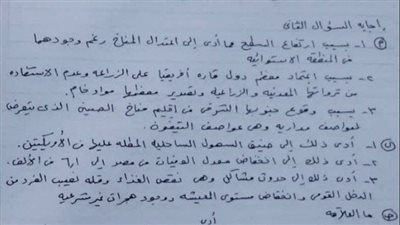 إجابه السؤال الثانى
(أ) ١- بسبب ارتفاع السطح مما أدى إلى اعتدال المناخ رغم وجودهما
فى المنطقه الاستوائيه
٢- بسبب اعتماد معظم دول قاره أفريقيا على الزراعه وعدم الاستفاده
من ثرواتها المعدنيه والزراعيه وتصدير معظمها مواد خام.
٣- بسبب وقوع جنوبها الشرقى فى إقليم مناخ الصينى الذى يتعرض
لعواصف مداريه وهى عواصف التيفون.
(ب) ١- أدى ذلك إلى ضيق السهول الساحليه المطله عليها فى الأمريكتين.
٢- أدى ذلك إلى انخفاض معدل الوفيات فى مصر إلى ٦,١ فى الألف.
٣- أدى ذلك إلى حدوث مشاكل وهى نقص الغذاء وقله نصيب الفرد من
الدخل القومى وانخفاض مستوى المعيشه ووجود هجرات غير شرعيه
(ج) ما العلاقه
أدى